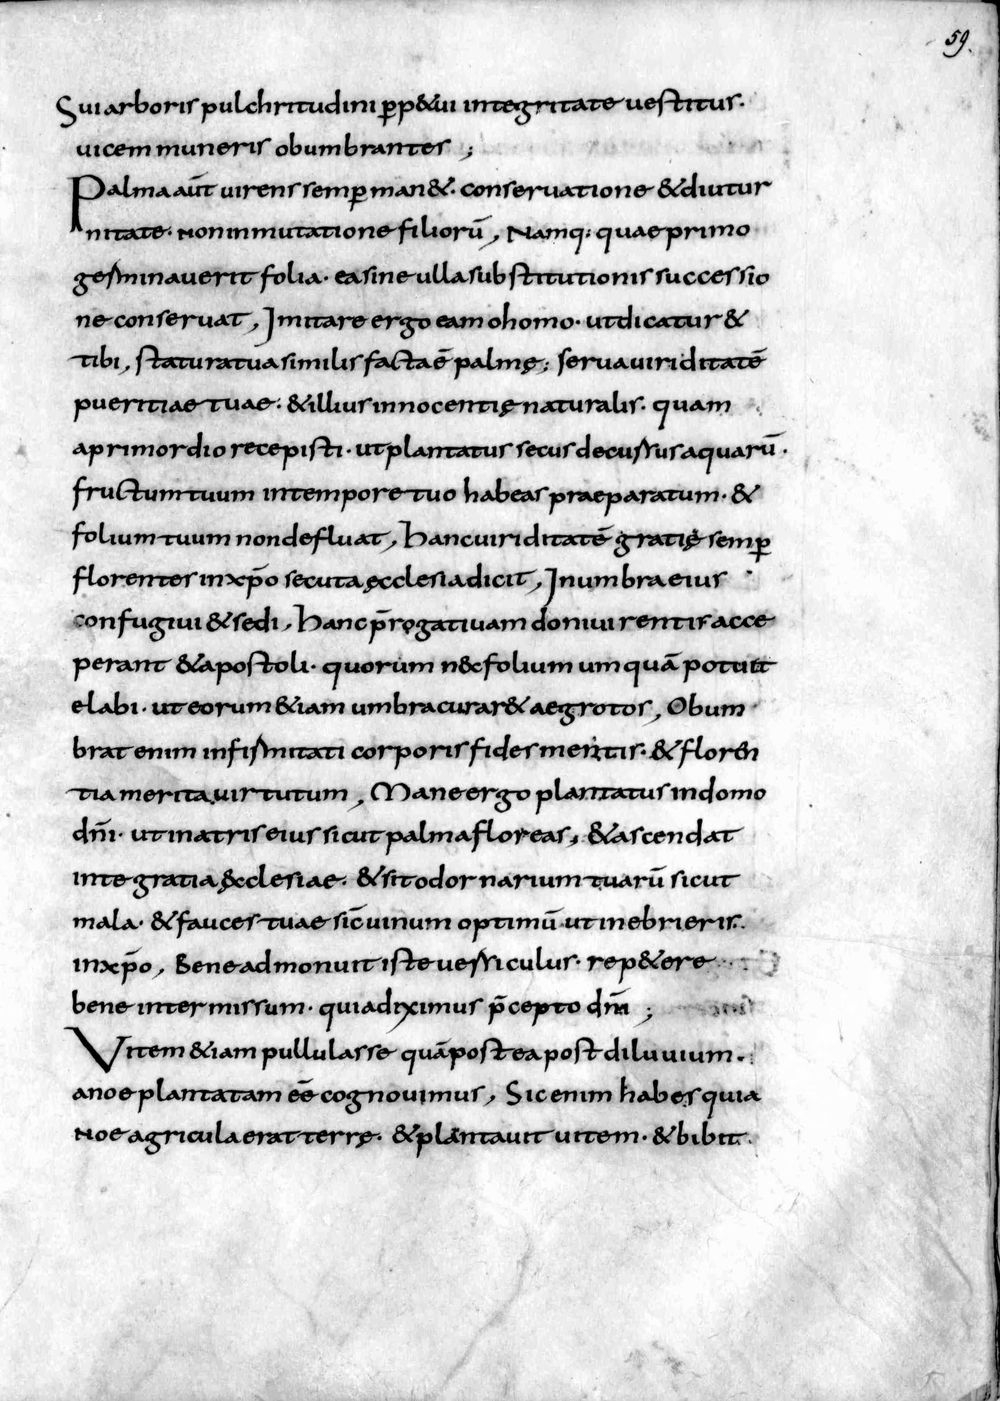 59.
Sui arboris pulchritudini ꝑp&ui integritate uestitus·
uicem muneris obumbrantes ;
Palma aūt uirens semꝑ man&· conseruatione & diutur
nitate· non inmutatione filiorū, Namq; quae primo
germinauerit folia· ea sine ulla substitutionis successio
ne conseruat, Imitare ergo eam o homo· ut dicatur &
tibi, statura tua similis facta ē palmę; serua uiriditatē
pueritiae tuae· & illius innocentię naturalis· quam
a primordio recepisti· ut plantatus secus decussus aquarū·
fructum tuum in tempore tuo habeas praeparatum· &
folium tuum non defluat, Hanc uiriditatē gratię semꝑ
florentes in xp̄o secuta ęcclesia dicit, In umbra eius
confugiui & sedi, Hanc p̄rogatiuam doni uirentis acce
perant & apostoli· quorum nec folium umquā potuit
elabi· ut eorum &iam umbra curar& aegrotos, Obum
brat enim infirmitati corporis fides mentis· & floren
tia merita uirtutum, Mane ergo plantatus in domo
dn̄i· ut in atriis eius sicut palma floreas, & ascendat
in te gratia ęcclesiae· & sit odor narium tuarū sicut
mala· & fauces tuae sic̄ uinum optimū ut inebrieris·
in xp̄o, Bene admonuit iste uersiculus· rep&ere
bene intermissum· quia diximus p̄cepto dn̄i ;
Vitem &iam pullulasse quā postea post diluuium·
a noe plantatam eē cognouimus, Sic enim habes quia
Noe agricula erat terrę· & plantauit uitem· & bibit